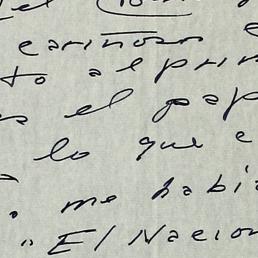 el
cariñoso
to al prin
el pap
lo que e
me habi
"El Nacion